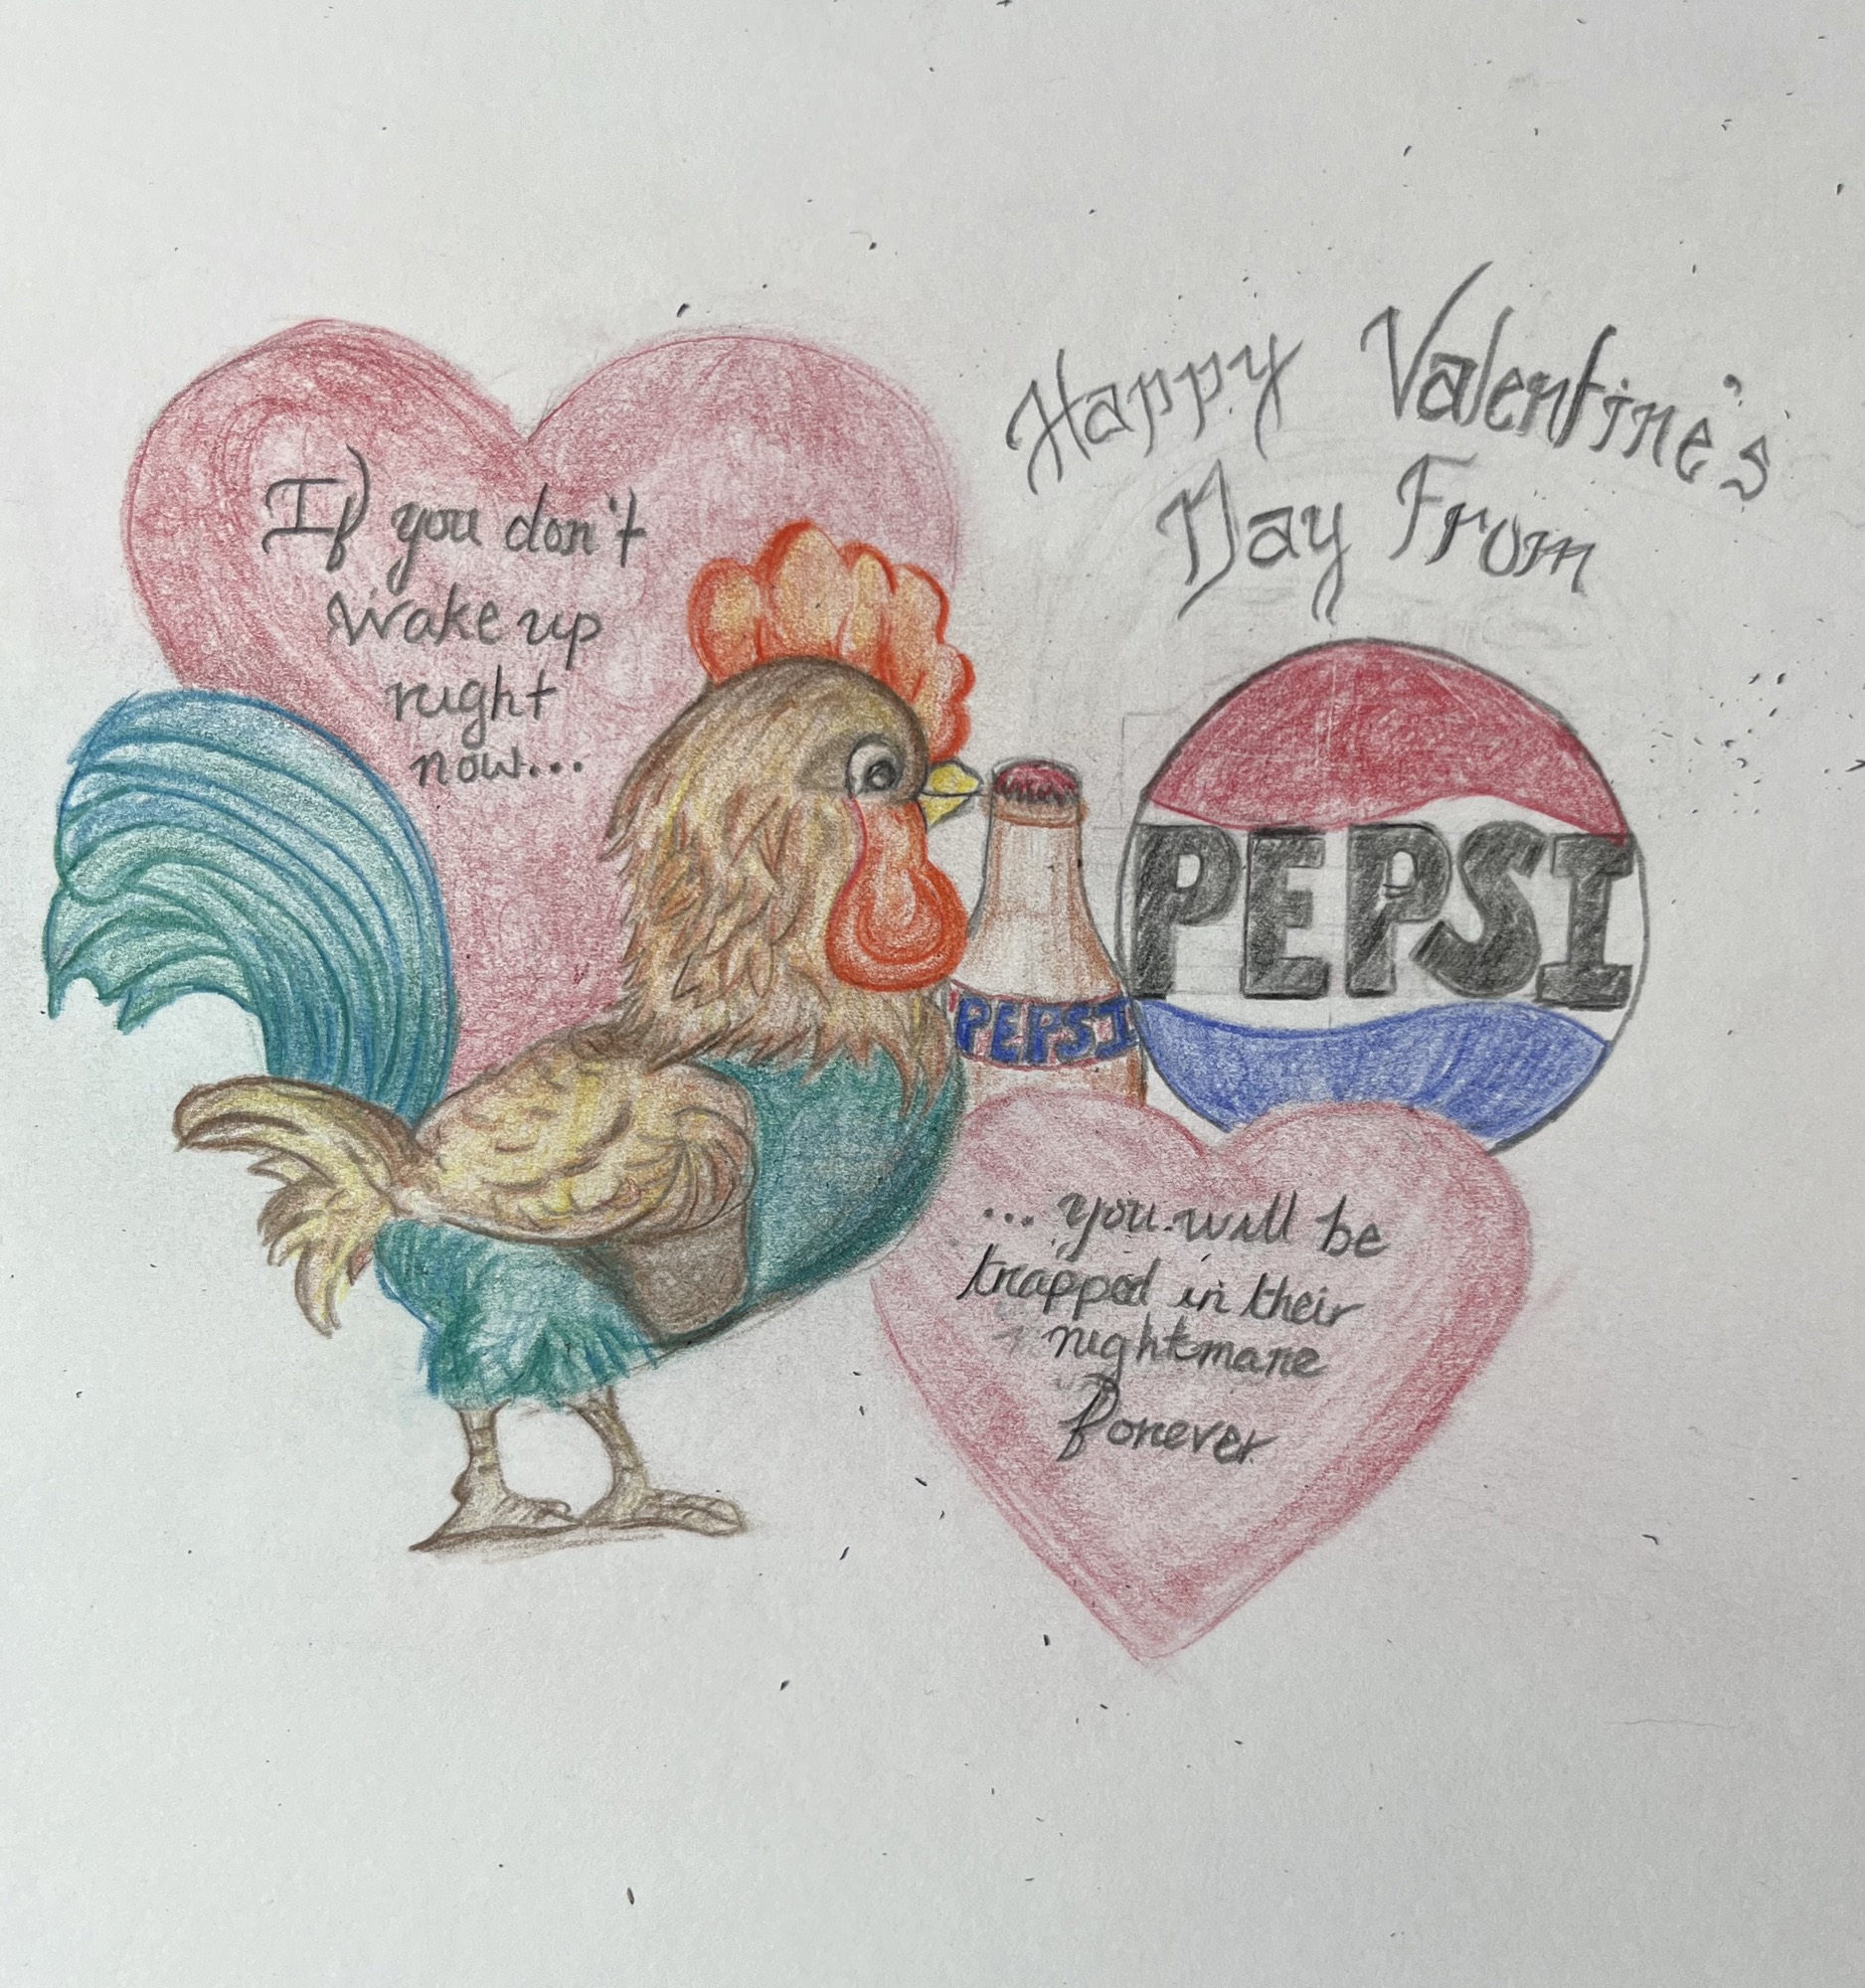 If you don't
wake up
right
now...
Happy Valentine's
Day From
PEPSI
PEPSI
...you will be
trapped in their
nightmare
forever.